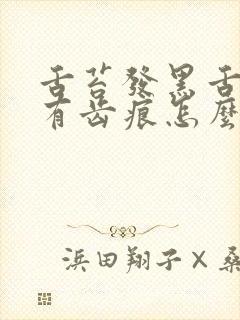 舌苔發黑舌
有齒痕怎麼
浜田翔子×桑